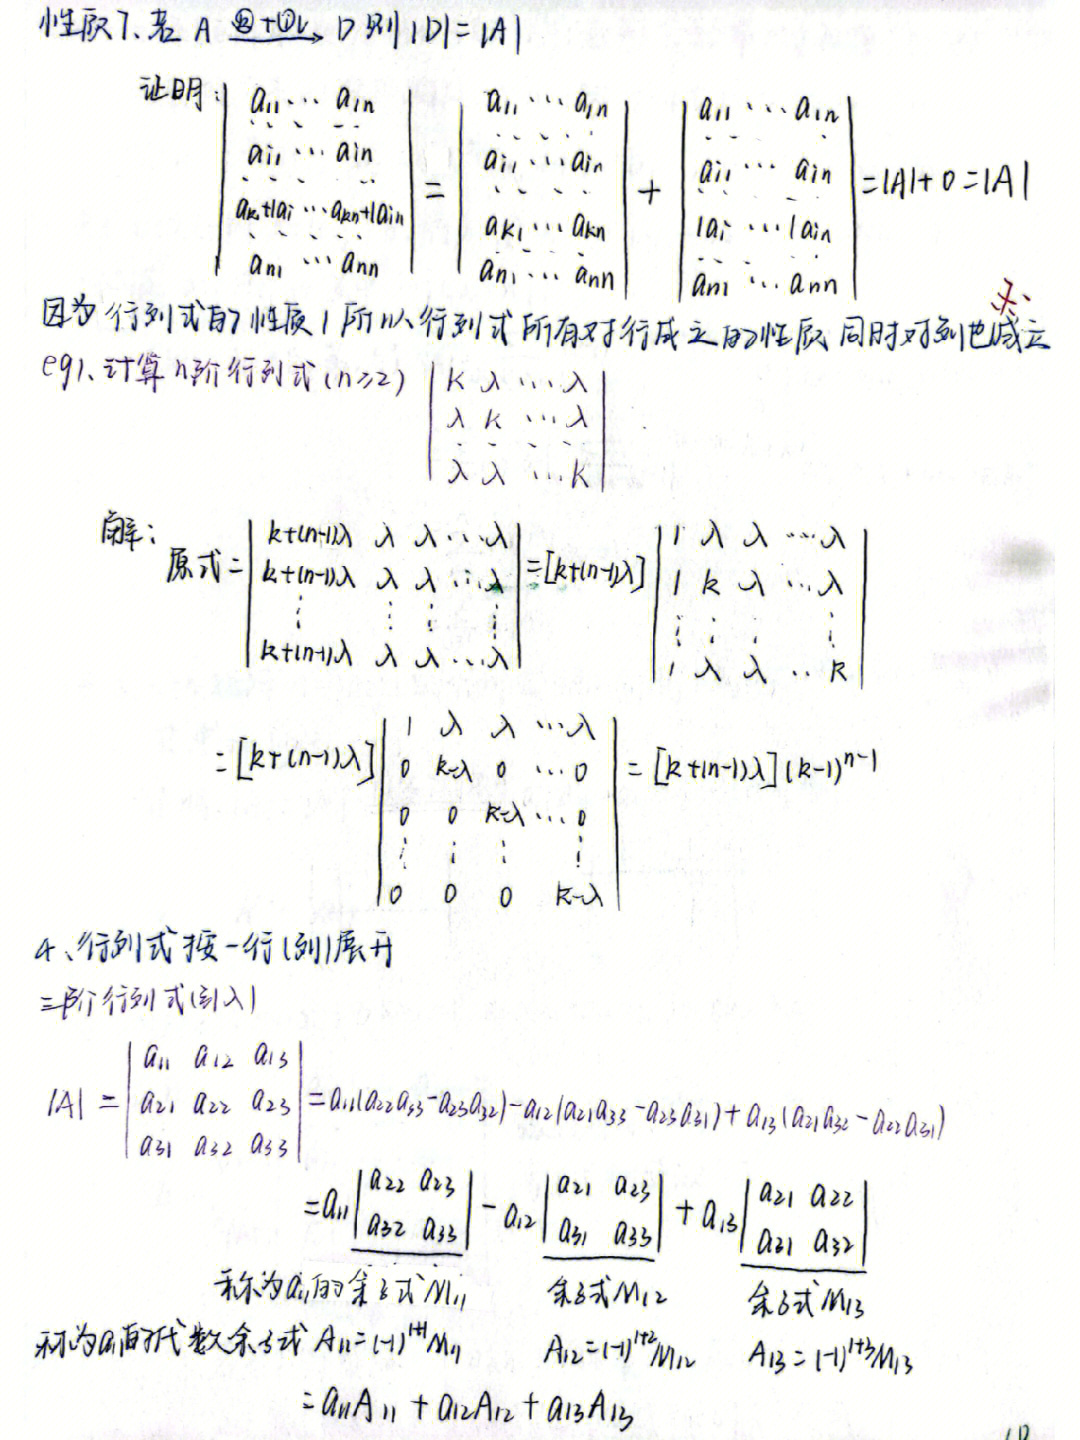 性质7、若 A ⓚ+ⓘl→ D 则 |D|=|A|
证明: | a11 ··· a1n ; ai1 ··· ain ; ak1+lai ··· akn+lain ; an1 ··· ann | = | a11 ··· a1n ; ai1 ··· ain ; ak1 ··· akn ; an1 ··· ann | + | a11 ··· a1n ; ai1 ··· ain ; lai ··· lain ; an1 ··· ann | = |A|+0=|A|
因为行列式的性质1所以行列式所有对行成立的性质同时对列也成立
eg1、计算n阶行列式(n≥2) | k λ ··· λ ; λ k ··· λ ; λ λ ··· k |
解:
原式= | k+(n-1)λ λ λ ··· λ ; k+(n-1)λ λ λ ··· λ ; ⋮ ⋮ ⋮ ⋮ ; k+(n-1)λ λ λ ··· λ | =[k+(n-1)λ] | 1 λ λ ··· λ ; 1 k λ ··· λ ; ⋮ ⋮ ⋮ ⋮ ; 1 λ λ ·· k |
=[k+(n-1)λ] | 1 λ λ ··· λ ; 0 k-λ 0 ··· 0 ; 0 0 k-λ ··· 0 ; ⋮ ⋮ ⋮ ⋮ ; 0 0 0 k-λ | = [k+(n-1)λ](k-1)^n-1
4、行列式按一行(列)展开
三阶行列式(引入)
|A| = | a11 a12 a13 ; a21 a22 a23 ; a31 a32 a33 | =a11(a22a33-a23a32)-a12(a21a33-a23a31)+a13(a21a32-a22a31)
=a11 | a22 a23 ; a32 a33 | - a12 | a21 a23 ; a31 a33 | + a13 | a21 a22 ; a31 a32 |
称为a11的余子式M11 余子式M12 余子式M13
称为a11的代数余子式 A11=(-1)^1+1 M11 A12=(-1)^1+2 M12 A13=(-1)^1+3 M13
=a11A11 + a12A12 + a13A13